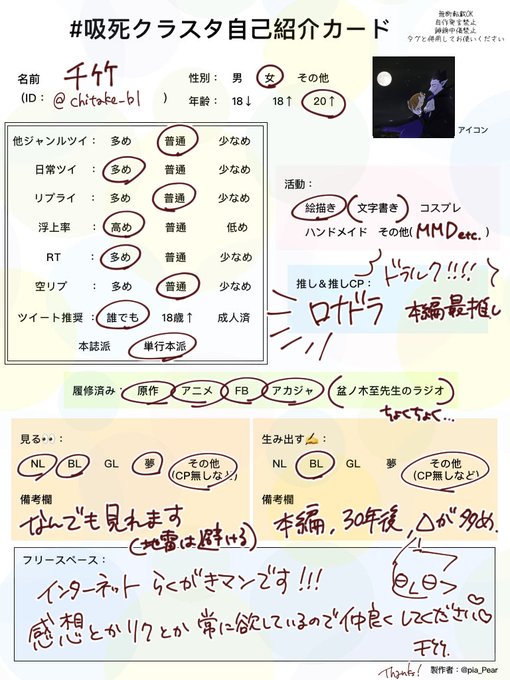 #吸死クラスタ自己紹介カード
無断転載OK
自作発言禁止
誹謗中傷禁止
タグと併用してお使いください
名前 千竹
(ID: @chitake_bl )
性別: 男 女 その他
年齢: 18↓ 18↑ 20↑
アイコン
他ジャンルツイ: 多め 普通 少なめ
日常ツイ: 多め 普通 少なめ
リプライ: 多め 普通 少なめ
浮上率: 高め 普通 低め
RT: 多め 普通 少なめ
空リプ: 多め 普通 少なめ
ツイート推奨: 誰でも 18歳↑ 成人済
本誌派 単行本派
活動:
絵描き (文字書き) コスプレ
ハンドメイド その他(MMDetc.)
推し&推しCP: ドラルク!!!!
ロナドラ 本編最推し
履修済み: 原作 アニメ FB アカジャ (盆ノ木至先生のラジオ)
ちょくちょく…
見る👀:
NL BL GL 夢 その他
(CP無しなど)
備考欄
なんでも見れます
(地雷は避ける)
生み出す✍:
NL BL GL 夢 その他
(CP無しなど)
備考欄
本編,30年後,△が多め.
フリースペース:
インターネットらくがきマンです!!!
感想とかリクとか常に欲しているので仲良くしてください♡
千竹.
Thanks! 製作者:@pia_Pear